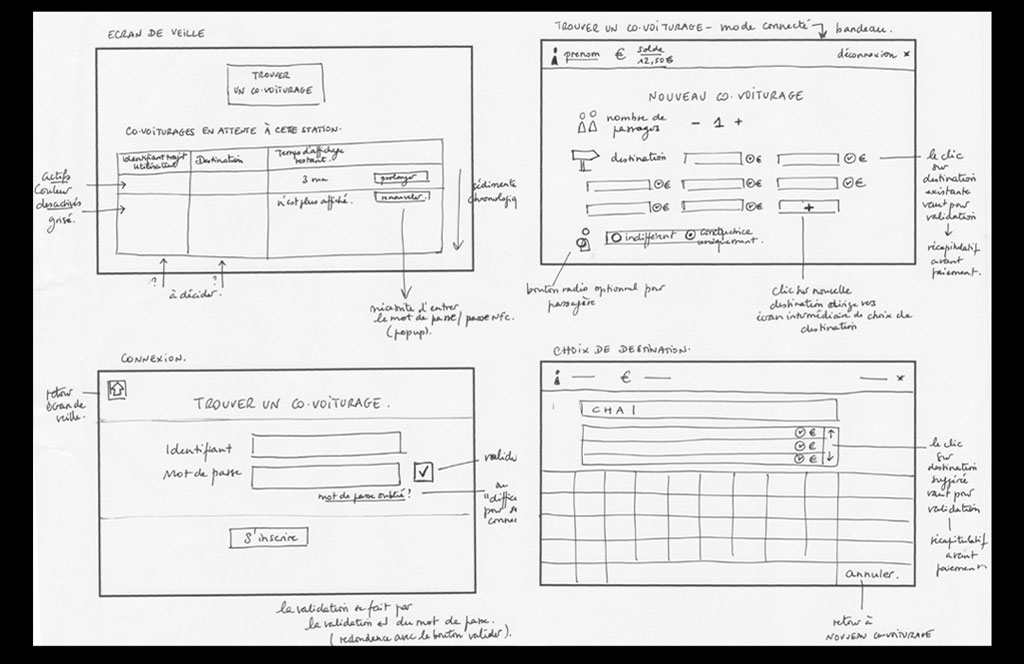 ECRAN DE VEILLE
TROUVER
UN CO.VOITURAGE
CO.VOITURAGES EN ATTENTE À CETTE STATION.
Identifiant trajet
utilisateur
Destination
Temps d'affichage
restant.
3 mn
prolonger
n'est plus affiché.
renouveler
actifs
couleur
desactivés
grisé.
sédimente
chronologiq
?
?
à décider.
nécessite d'entrer
le mot de passe/passe Nfc.
(popup).
TROUVER UN CO.VOITURAGE - mode connecté
bandeau.
prenom
€
solde
12,50€
déconnexion ×
NOUVEAU CO.VOITURAGE
nombre de
passagers
- 1 +
destination
€
€
€
€
€
€
€
+
indifférent
conductrice
uniquement.
bouton radio optionnel pour
passagère
clic sur nouvelle
destination dirige vers
écran intermédiaire de choix de
destination
le clic
sur
destination
existante
vaut pour
validation
récapitulatif
avant
paiement.
CONNEXION.
retour
écran de
veille.
TROUVER UN CO.VOITURAGE.
Identifiant
Mot de passe
mot de passe oublié?
valide
ou
"diffic
pour se
connec
S'inscrire
la validation se fait par
la validation est du mot de passe.
(redondence avec le bouton valider).
CHOIX DE DESTINATION.
€
×
CHA|
€
€
€
annuler.
retour à
NOUVEAU CO.VOITURAGE
le clic
sur
destination
suggérée
vaut pour
validation
récapitulatif
avant
paiement.